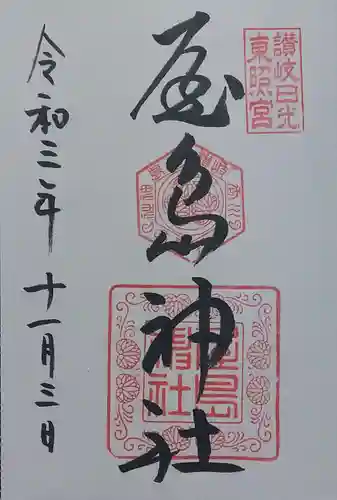 讃岐日光
東照宮
屋島神社
令和三年十一月三日